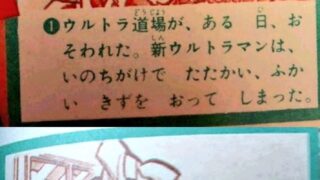 ❶ウルトラ道場が、ある 日、お
そわれた。新ウルトラマンは、
いのちがけで たたかい、ふか
い きずを おって しまった。